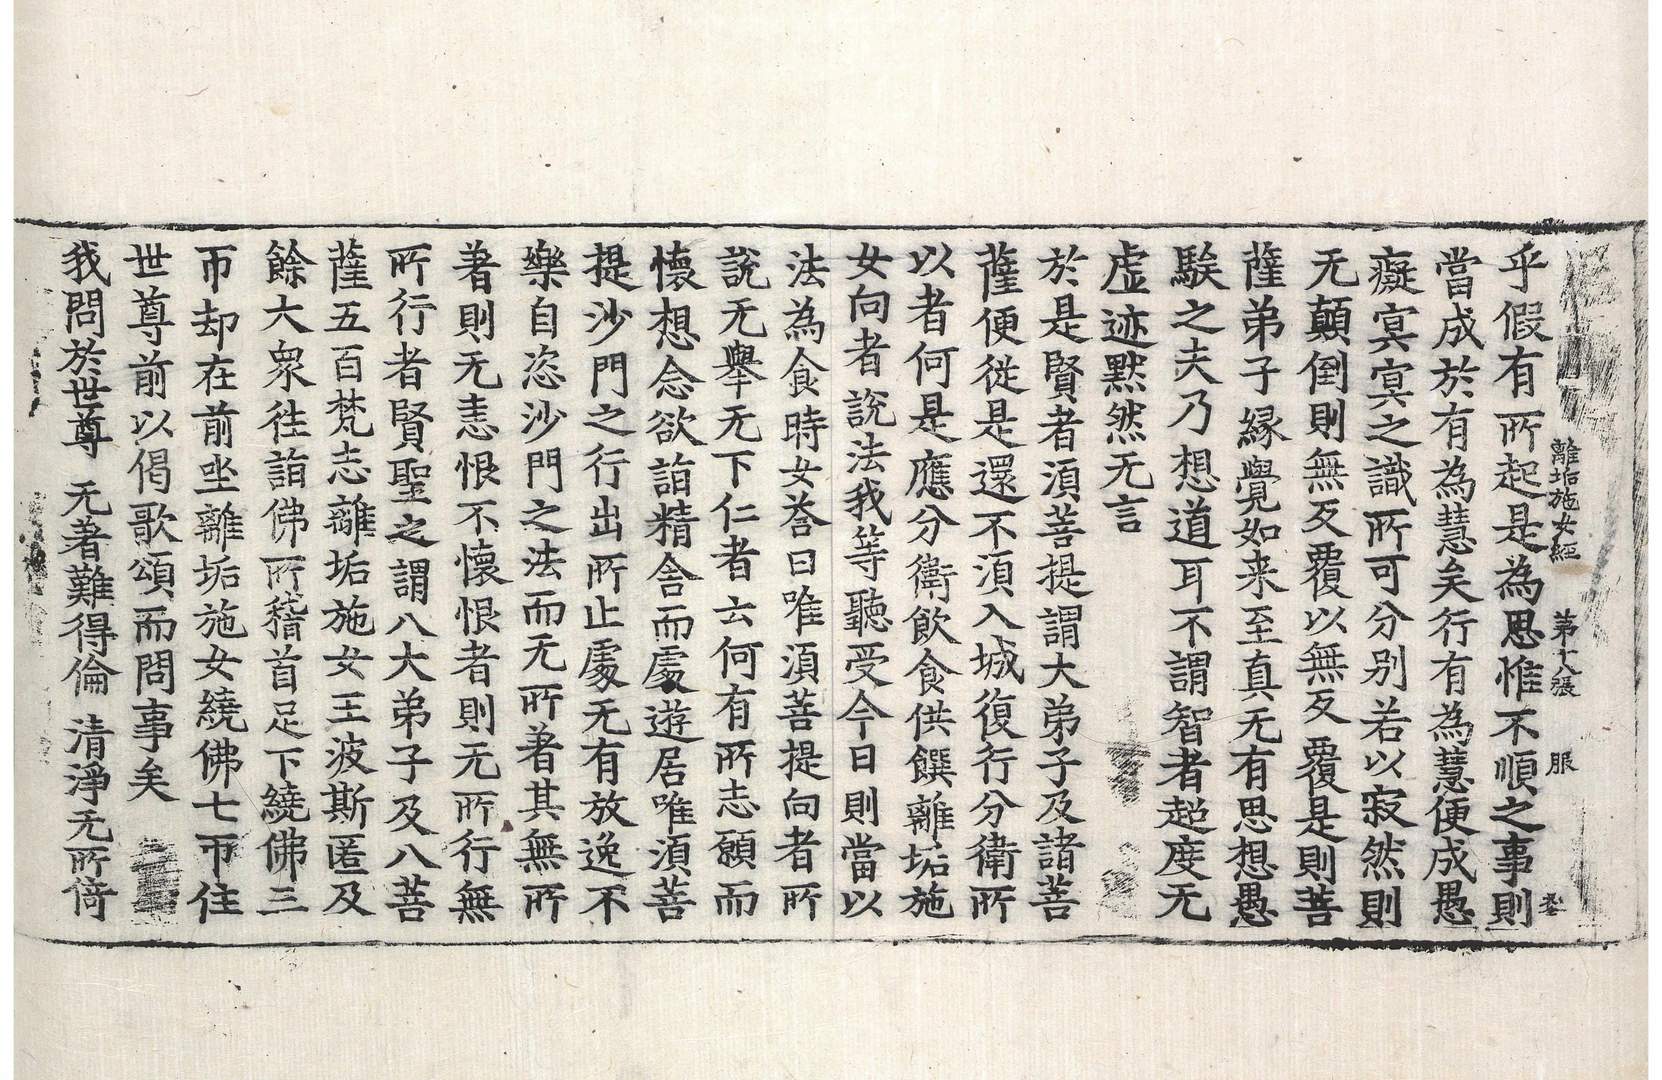 離垢施女經 第十八張 服
乎假有所起是為思惟不順之事則
當成於有為慧矣行有為慧便成愚
癡冥冥之識所可分別若以寂然則
无顛倒則無反覆以無反覆是則菩
薩弟子緣覺如来至真无有思想愚
騃之夫乃想道耳不謂智者超度无
虛迹默然无言
於是賢者須菩提謂大弟子及諸菩
薩便從是還不須入城復行分衛所
以者何是應分衛飲食供饌離垢施
女向者說法我等聽受今日則當以
法為食時女荅曰唯須菩提向者所
說无舉无下仁者云何有所志願而
懷想念欲詣精舍而處遊居唯須菩
提沙門之行出所止處无有放逸不
樂自恣沙門之法而无所著其無所
著則无恚恨不懷恨者則无所行無
所行者賢聖之謂八大弟子及八菩
薩五百梵志離垢施女王波斯匿及
餘大衆往詣佛所稽首足下繞佛三
帀却在前坐離垢施女繞佛七帀住
世尊前以偈歌頌而問事矣
我問於世尊 无著難得倫 清淨无所倚